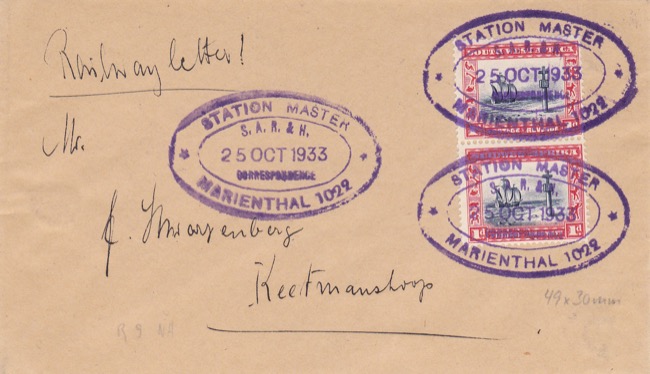 Railway letter!
STATION MASTER
S. A. R. & H.
25 OCT 1933
CORRESPONDENCE
MARIENTHAL 1022
STATION MASTER
S. A. R. & H.
25 OCT 1933
CORRESPONDENCE
MARIENTHAL 1022
Mr.
STATION MASTER
S. A. R. & H.
5 OCT 1933
MARIENTHAL 1022
1D
Keetmanshoop
49 x 30 mm